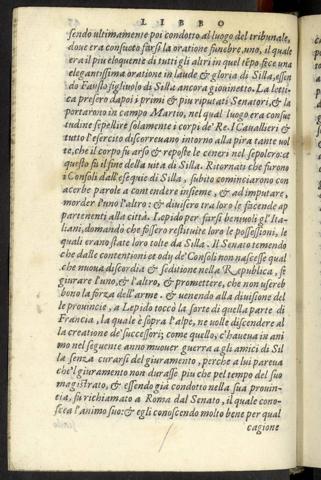 LIBRO
sendo ultimamente poi condotto al luogo del tribunale,
dove era consueto farsi la oratione funebre, uno, il quale
era il piu eloquente di tutti gli altri in quel tẽpo fece una
elegantissima oratione in laude & gloria di Silla, essen
do Fausto figliuolo di Silla ancora giovinetto. La letti
ca presero dapoi i primi & piu riputati Senatori, & la
portarono in campo Martio, nel qual luogo era consue
tudine sepellire solamente i corpi de' Re. I Cavallieri &
tutto l'esercito discorrevano intorno alla pira tante vol
te, che il corpo fu arso & reposte le ceneri nel sepolcro: et
questo fu il fine della vita di Silla. Ritornati che furono
i Consoli dall'esequie di Silla, subito cominciarono con
acerbe parole a contendere insieme, & ad imputare,
morder l'uno l'altro: & divisero tra loro le facende ap
partenenti alla città. Lepido per farsi benivoli gl'Ita-
liani, domandò che fossero restituite loro le possessioni, le
quali erano state loro tolte da Silla. Il Senato temendo
che dalle contentioni et odij de' Consoli non nascesse qual
che nuova discordia & seditione nella Republica, fe
giurare l'uno, & l'altro, & promettere, che non usereb
bono la forza dell'arme. & venendo alla divisione del
le provincie, a Lepido tocco la sorte di quella parte di
Francia, la quale è sopra l'alpe, ne volle discendere al
la creatione de' successori; come quello, c'haueva in ani
mo nel seguente anno muover guerra a gli amici di Sil
la senza curarsi del giuramento, perche a lui pareva
che'l giuramento non durasse piu che pel tempo del suo
magistrato, & essendo già condotto nella sua provin-
cia, fu richiamato a Roma dal Senato, il quale cono-
scea l'animo suo: & egli conoscendo molto bene per qual
cagione